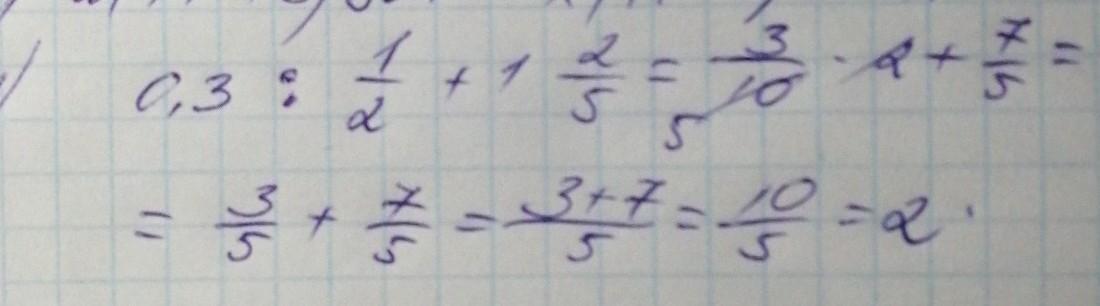 0,3 : 1/2 + 1 2/5 = 3/10 · 2 + 7/5 =
5
= 3/5 + 7/5 = 3+7/5 = 10/5 = 2.